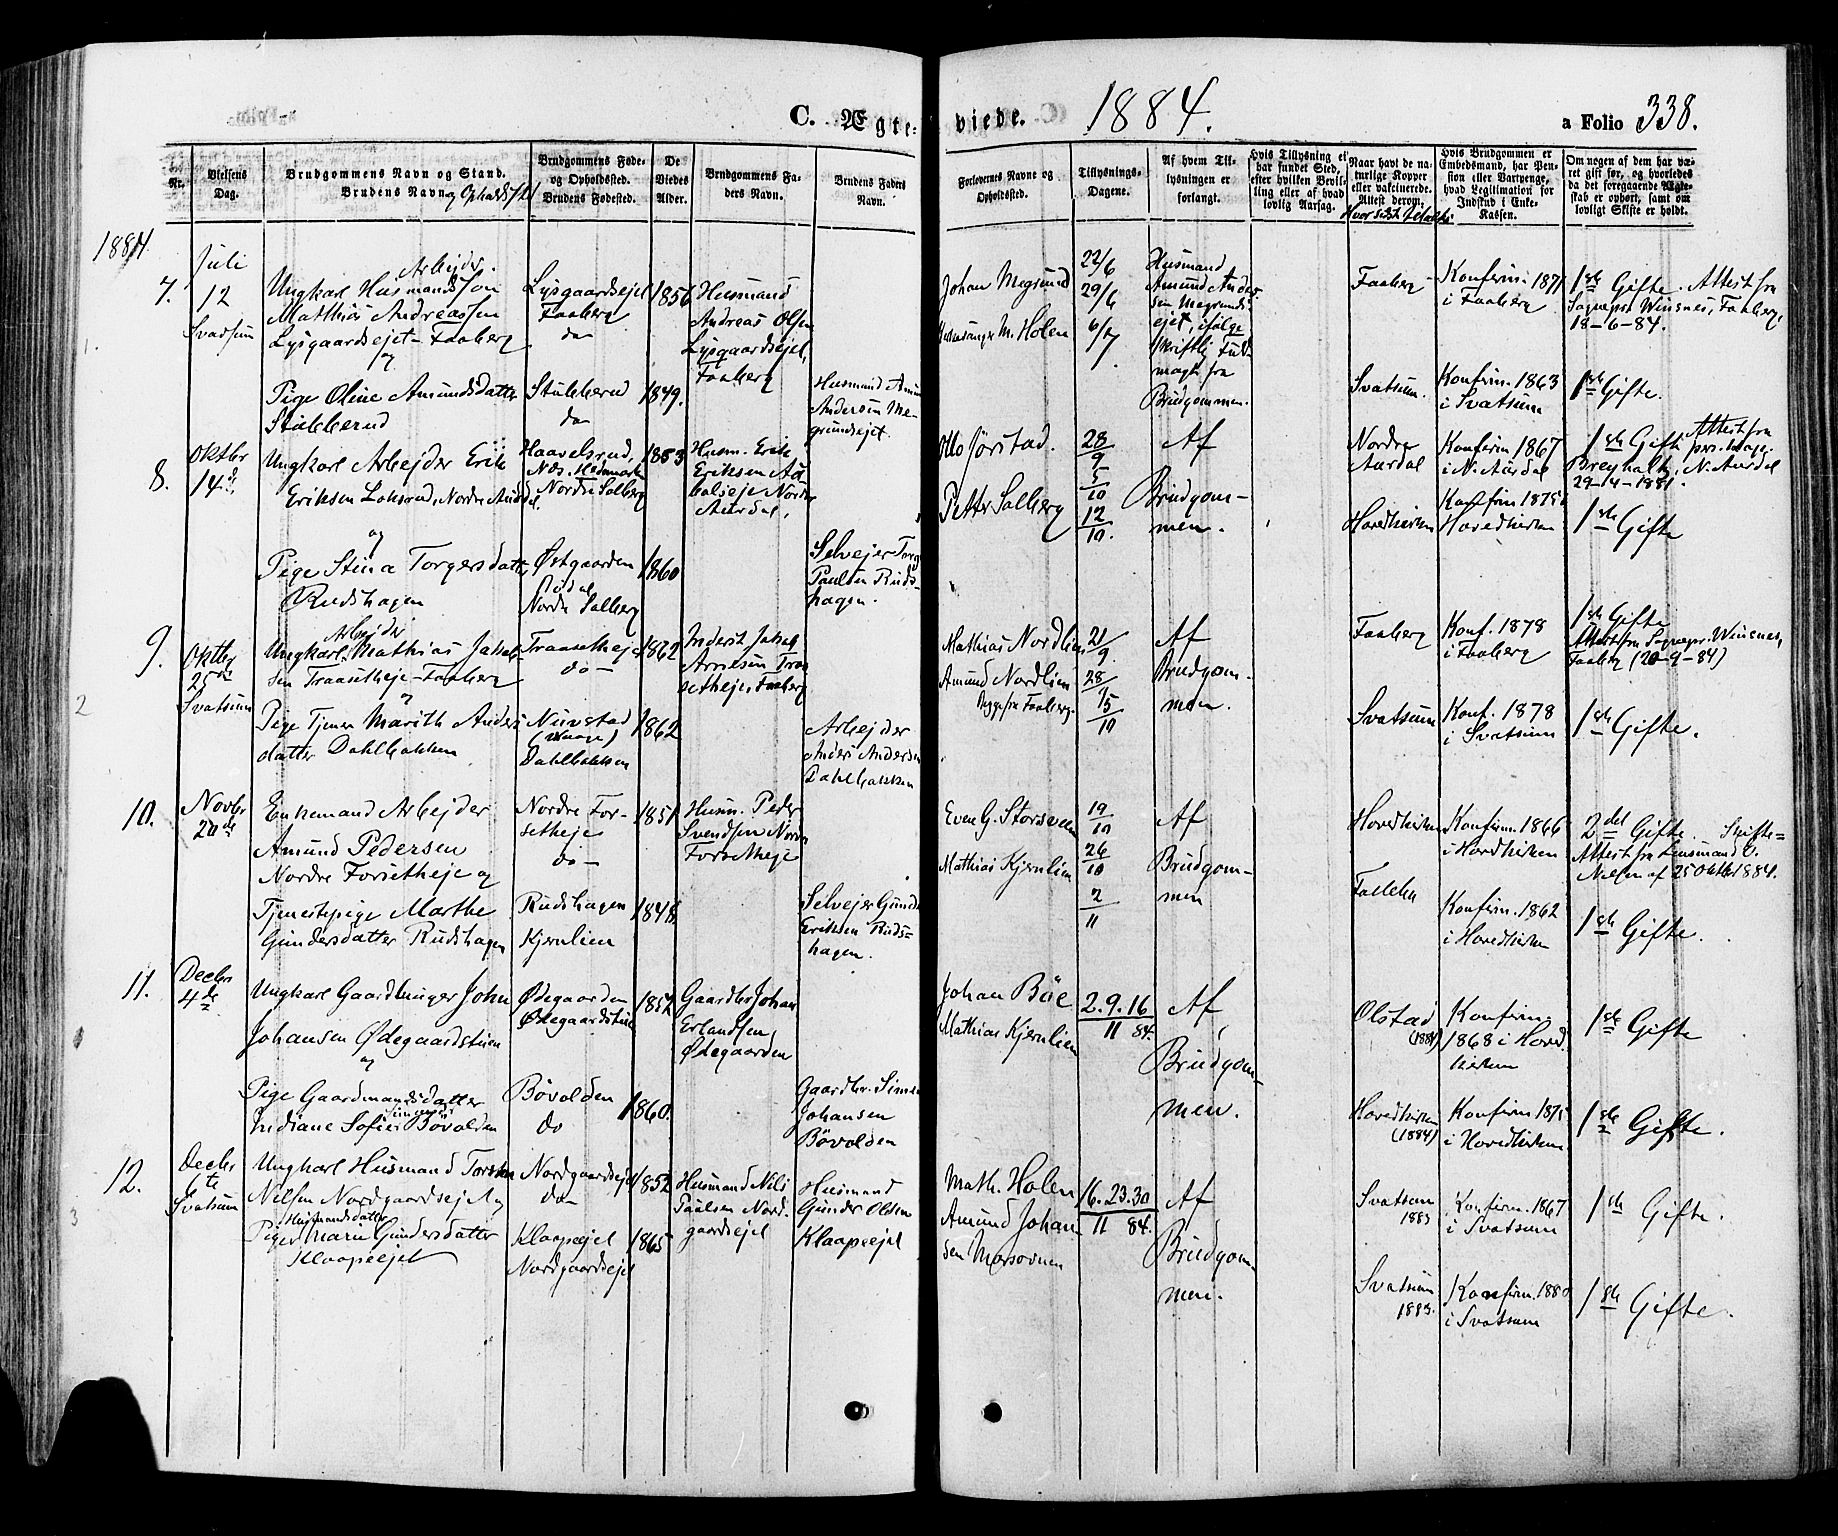 C. Ægte-
viede.
1884.
a Folio 338.
Nr.
Vielsens
Dag.
Brudgommens Navn og Stand.
Brudens Navn og Opholdsted
Brudgommens Føde-
og Opholdsted.
Brudens Fødested.
De
Viedes
Alder.
Brudgommens Fa-
ders Navn.
Brudens Faders
Navn.
Forlovernes Navne og
Opholdssted.
Tillysnings-
Dagene.
Af hvem Til-
lysningen er
forlangt.
Hvis Tillysning ei
har fundet Sted,
efter hvilken Bevil-
ling eller af hvad
lovlig Aarsag.
Naar havt de na-
turlige Kopper
eller vakcinerede.
Attest derom.
Hvis Brudgommen er
Embedsmand, har Pen-
sion eller Vartpenge,
hvad Legitimation for
Indskud i Enke-
Kassen.
Om nogen af dem har væ-
ret gift før, og hvorledes
da det foregaaende Ægte-
skab er ophørt, samt om
lovligt Skifte er holdt.
1884.
7.
Juli
12
Svatsum
Arbejder.
Ungkarl Husmandssøn
Matthias Andreassen
Lysgaardsejet - Faaberg
og
Pige Oline Amundsdatter
Stubberud
Lysgaardsejet
Faaberg
do
Stubberud
do
1856
1849.
Husmand
Andreas Olsen
Lysgaardsejet,
Faaberg
Husmand Amun
Andersen Me-
grundsejet.
Johan Megrund
M. Holen
22/6
29/6
6/7
Husmand
Amund Ander-
sen Megrunds-
ejet, ifølge
skriftlig Fuld-
magt fra
Brudgommen.
Faaberg
Svatsum.
Konfirm. 1871
i Faaberg
Konfirm. 1863
i Svatsum
1ste Gifte. Attest fra
Sognepr. Winsnes, Faaberg,
18-6-84.
1ste Gifte.
8.
Oktbr
14de
Ungkarl Arbejder Erik
Eriksen Lohsrud, Nordre Aurdal.
og
Pige Stina Torgersdatter
Rudshagen
Haavelsrud,
Næs. Hedemarken
Nordre Salberg
Østgaarden
Nordre Salberg
1853
1860
Husm. Erik
Eriksen
Nordre
Aurdal.
Selvejer Torg
Paulsen Ruds-
hagen.
Otto Jørstad.
Petter Salberg
28/9
5/10
12/10.
Af
Brudgom-
men.
Nordre
Aurdal
Hovedkirken
Konfirm 1867
i N. Aurdal
Konfirm 1875 i
Hovedkirken
1ste Gifte Attest fra
N. Aurdal
29-14-1881.
1ste Gifte
9.
Oktbr
25de
Svatsum
Arbejder
Ungkarl Mathias Jakob-
sen Traasetheje - Faaberg
og
Pige Tjener Marith Anders
datter Dahlbakken
Traasetheje
do
Dahlbakken
1862
1862
Inderst Jakob
Arnesen Traa
setheje, Faaberg
Arbejder
Anders Andersen
Dahlbakken
Mathias Nordlien
Amund Nordlien
Begge fra Faaberg.
21/9.
28/
5/10
Af
Brudgom-
men.
Faaberg
Svatsum
Konf. 1878
i Faaberg
Konf. 1878
i Svatsum
1ste Gifte
Attest fra Sognepr. Winsnes,
Faaberg (20-9-84)
1ste Gifte.
10.
Novbr
20de
Enkemand Arbejder
Amund Pedersen
Nordre Forsetheje og
Tjenestepige Marthe
Gundersdatter Rudshagen
Nordre For-
setheje
do
Rudshagen
Kjernlien
1851
1848
Husm. Peder
Svendsen Nordre
Forsetheje
Selvejer Gunder
Eriksen Ruds-
hagen.
Even G. Storsveen
Mathias Kjernlien
19/10
26/10
2/11
Af
Brudgom-
men
Hovedkirken
Follebu
Konfirm. 1866
i Hovedkirken
Konfirm. 1862
i Hovedkirken
2det Gifte. Skifte-
Attest fra Lensmand O.
Nielsen af 25 Oktbr 1884.
1ste Gifte.
11.
Decbr
4de
Ungkarl Gaardbruger John
Johansen Ødegaardstuen
og
Pige Gaardmandsdatter
Indiane Sofie Simens Bøvolden
Ødegaarden
Ødegaardstuen
Bøvolden
do
1852
1860.
Gaardbr Johan
Erlandsen
Ødegaarden
Gaardbr. Simen
Johansen
Bøvolden
Johan Bøe
Mathias Kjernlien
2. 9. 16
11 84.
Af
Brudgom-
men.
Olstad
(1884)
Hovedkirken
(1884)
Konfirm.
1868 i Hoved-
kirken
Konfirm 1875
i Hovedkirken
1ste Gifte
1ste Gifte.
12.
Decbr
6te
Svatsum
Ungkarl Husmand Torsten
Nilsen Nordgaardsejet og
Husmandsdatter
Pige Marie Gundersdatter
Klaapeejet
Nordgaardsejet
do
Klaapeejet
Nordgaardsejet
1852
1865
Husmand Nils
Paalsen Nord-
gaardsejet
Husmand
Gunder Olsen
Klaapeejet
Math. Holen
Amund Johan
sen Morsovnen
16. 23. 30
11 84.
Af
Brudgom
men.
Svatsum
1883
Svatsum
1883.
Konfirm. 1867
i Svatsum
Konfirm. 1880
i Svatsum
1ste Gifte.
1ste Gifte.